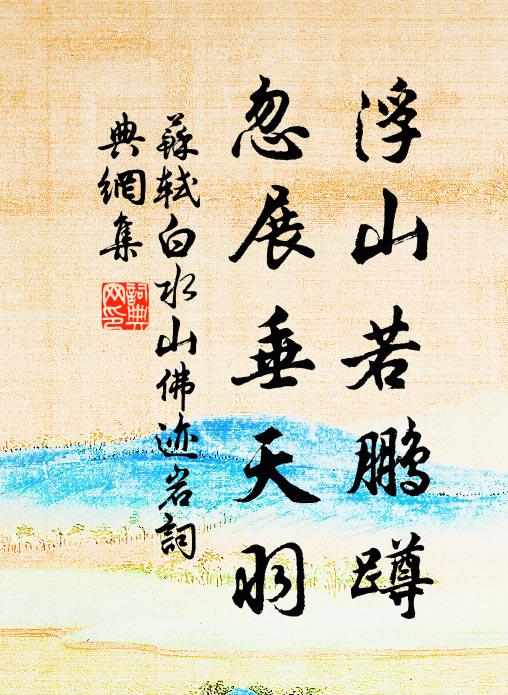 浮山若鵬蹲
忽展垂天羽
蘇軾白水山佛迹岩詞
典網集
詞典网印